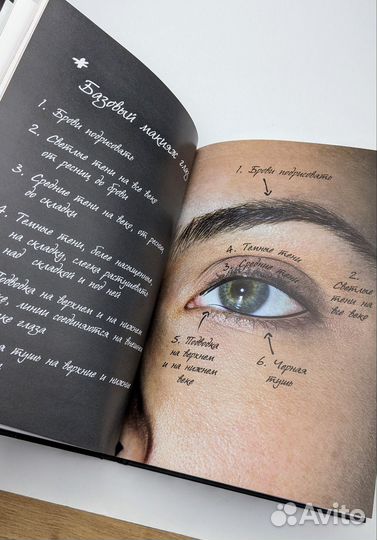 Базовый макияж глаз
1. Брови подрисовать
2. Светлые тени на все веке
от ресниц до брови
3. Средние тени на веко, от ресниц
до складки
4. Темные тени, более насыщенные,
на складку, слегка растушевать
над складкой и под ней
Подводка на верхнем и на нижнем
веке, линии соединяются на внешнем
глаза
тушь на верхние и нижние
1. Брови подрисовать
4. Темные тени
3. Средние тени
2. Светлые
тени на
все веке
5. Подводка
на верхнем
и на нижнем
веке
6. Черная
тушь
Avito